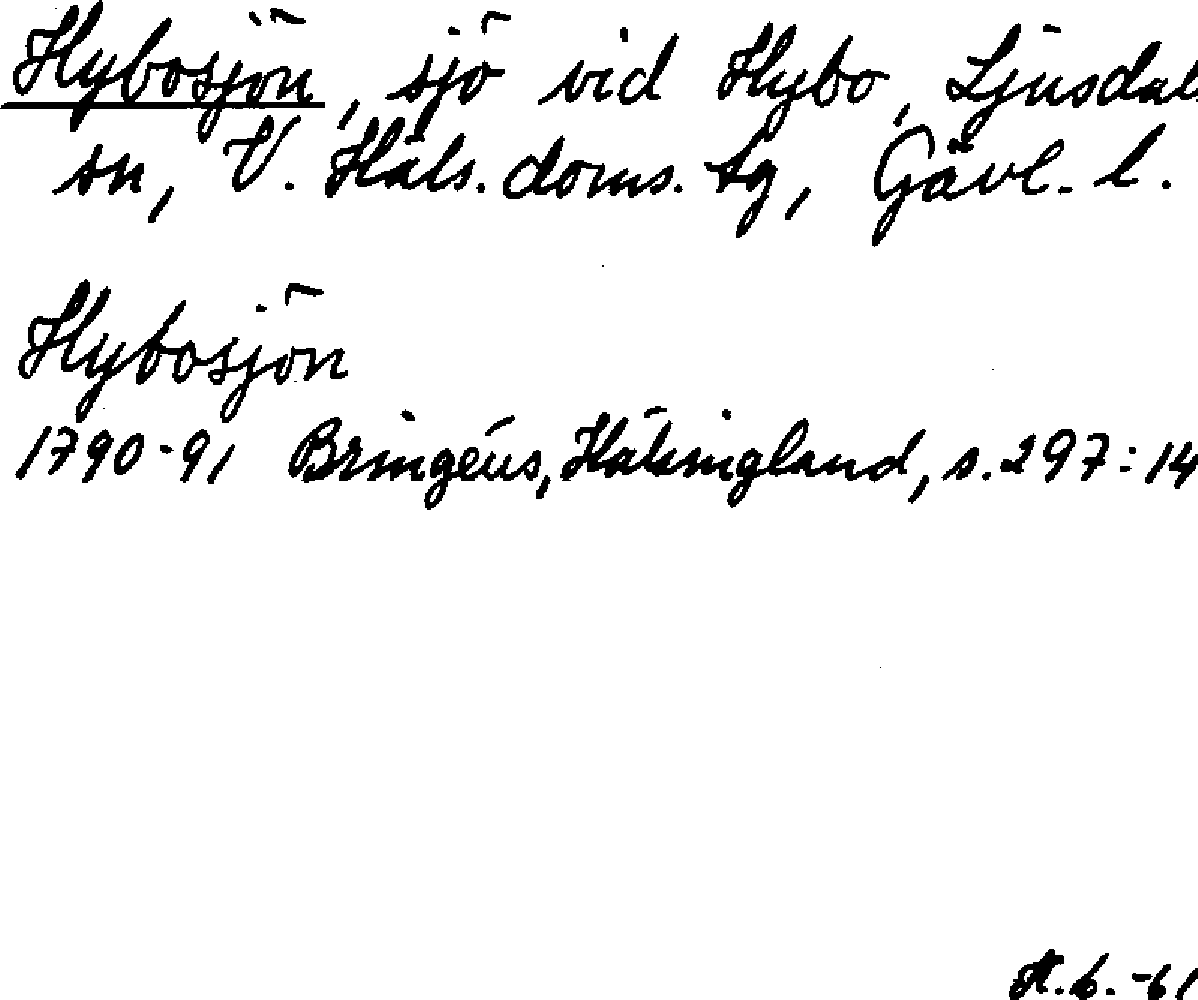 Hybosjön, sjö vid Hybo, Ljusdals
sn, V. Häls. doms. tg, Gävl. l.
Hybosjön
1790-91 Bringéus, Hälsingland, s. 297:14